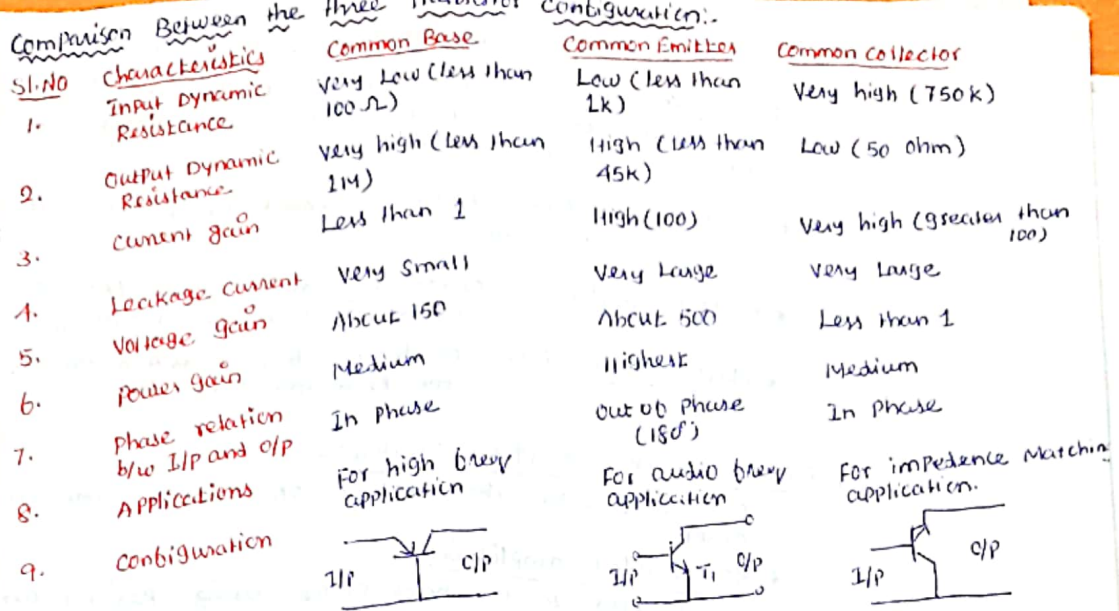 Comparison Between the three Configuration:-
Sl.No Characteristics Common Base Common Emitter Common Collector
1. Input Dynamic Resistance Very Low (less than 100 Ω) Low (less than 1k) Very high (750k)
2. Output Dynamic Resistance Very high (Less than 1M) High (less than 45k) Low (50 ohm)
3. Current gain Less than 1 High (100) Very high (greater than 100)
4. Leakage Current Very Small Very Large Very Large
5. Voltage gain About 150 About 500 Less than 1
6. Power gain Medium Highest Medium
7. Phase relation b/w I/p and O/p In Phase Out of Phase (180°) In Phase
8. Applications For high freq application For audio freq application For impedence Matching application.
9. Configuration I/P O/P I/P T1 O/P I/P O/P